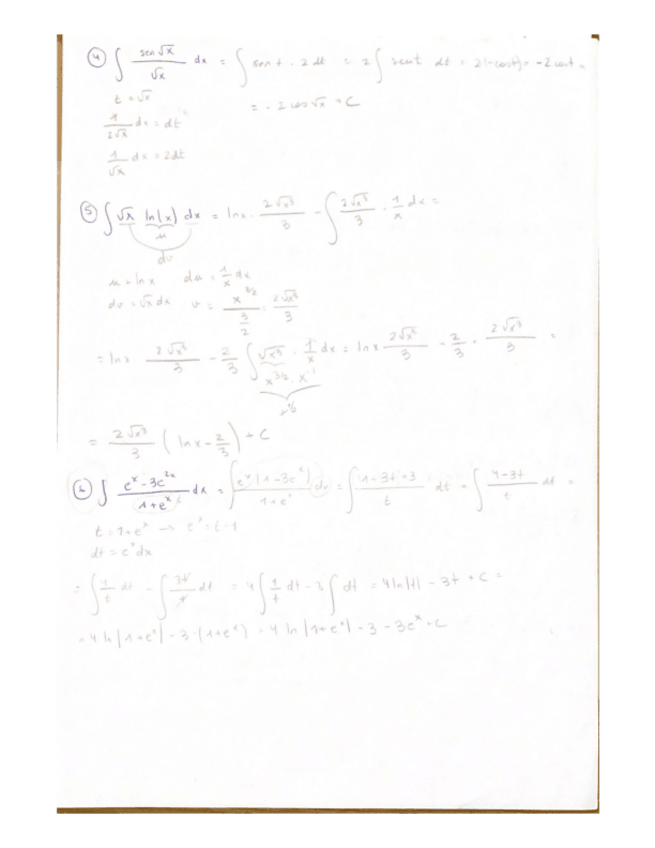 ④ ∫ sen√x/√x dx = ∫ sen t · 2 dt = 2 ∫ sen t dt = 2(-cos t) = -2 cos t =
t = √x
= -2 cos √x + C
1/(2√x) dx = dt
1/√x dx = 2dt
⑤ ∫ √x ln(x) dx = ln x · 2√x³/3 - ∫ 2√x³/3 · 1/x dx =
u
dv
u = ln x du = 1/x dx
dv = √x dx v = x^(3/2)/(3/2) = 2√x³/3
= ln x 2√x³/3 - 2/3 ∫ √x³ · 1/x dx = ln x 2√x³/3 - 2/3 · 2√x³/3 =
x^(3/2) · x^(-1)
= 2√x³/3 (ln x - 2/3) + C
∫ (e^x - 3e^(2x))/(1+e^x) dx = ∫ e^x(1-3e^x)/(1+e^x) dx = ∫ (1-3t+3)/t dt = ∫ (4-3t)/t dt =
t = 1+e^x → e^x = t-1
dt = e^x dx
= ∫ 4/t dt - ∫ 3t/t dt = 4 ∫ 1/t dt - 3 ∫ dt = 4 ln|t| - 3t + C =
= 4 ln|1+e^x| - 3·(1+e^x) = 4 ln|1+e^x| - 3 - 3e^x + C